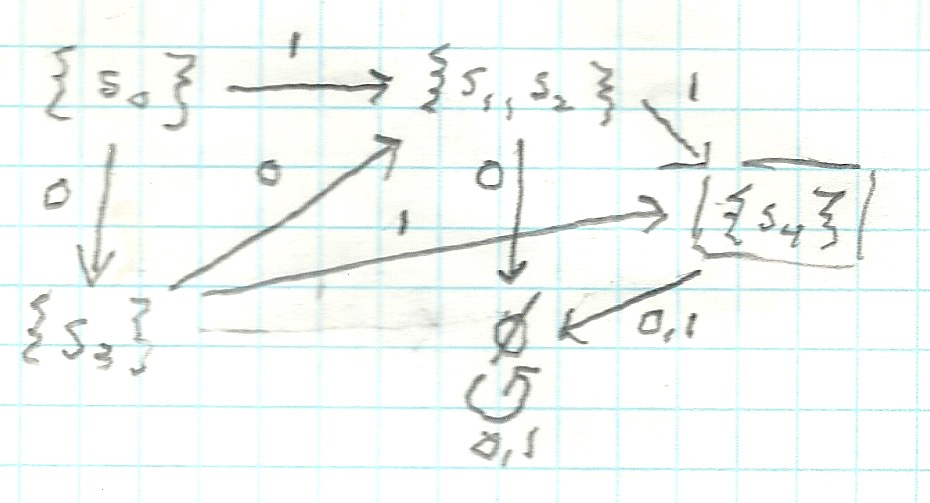 1
{s₀} {s₁, s₂} 1
0 0 0
1 {s₄}
{s₃} ∅ 0,1
0,1